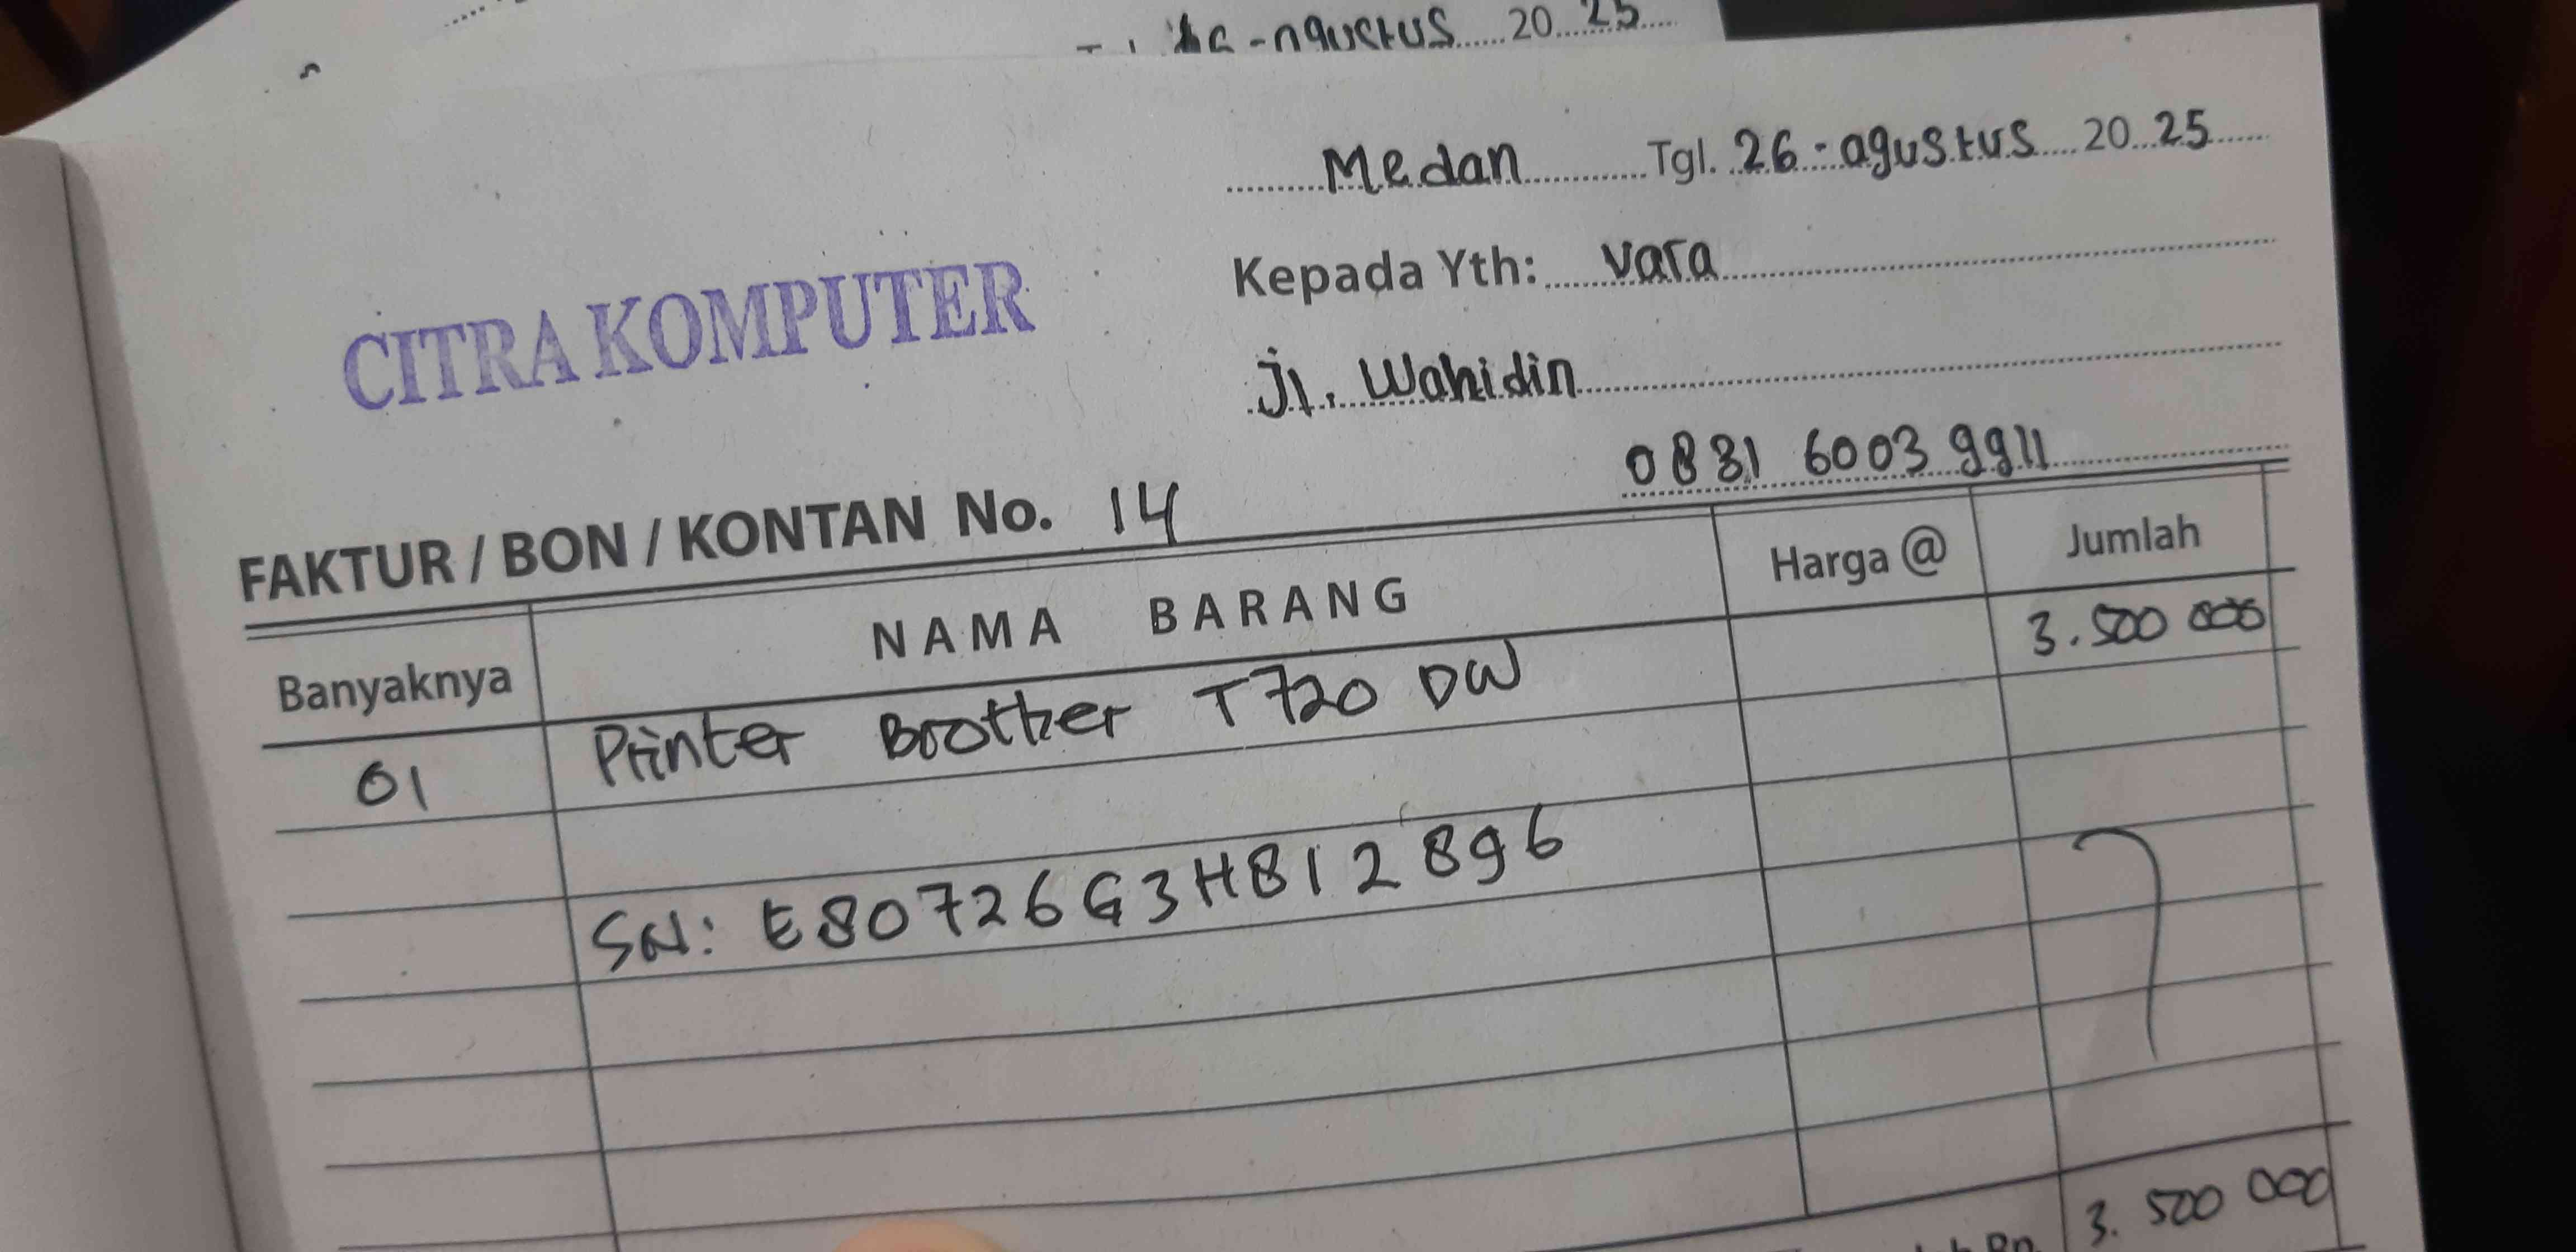 agustus 20 25
Medan Tgl. 26-agustus 20 25
Kepada Yth: vara
CITRA KOMPUTER
Jl. Wahidin
0831 6003 9911
FAKTUR / BON / KONTAN No. 14
Banyaknya NAMA BARANG Harga @ Jumlah
01 Printer Brother T720 DW 3.500 000
SN: E80726G3H812896
Rp. 3. 500 000